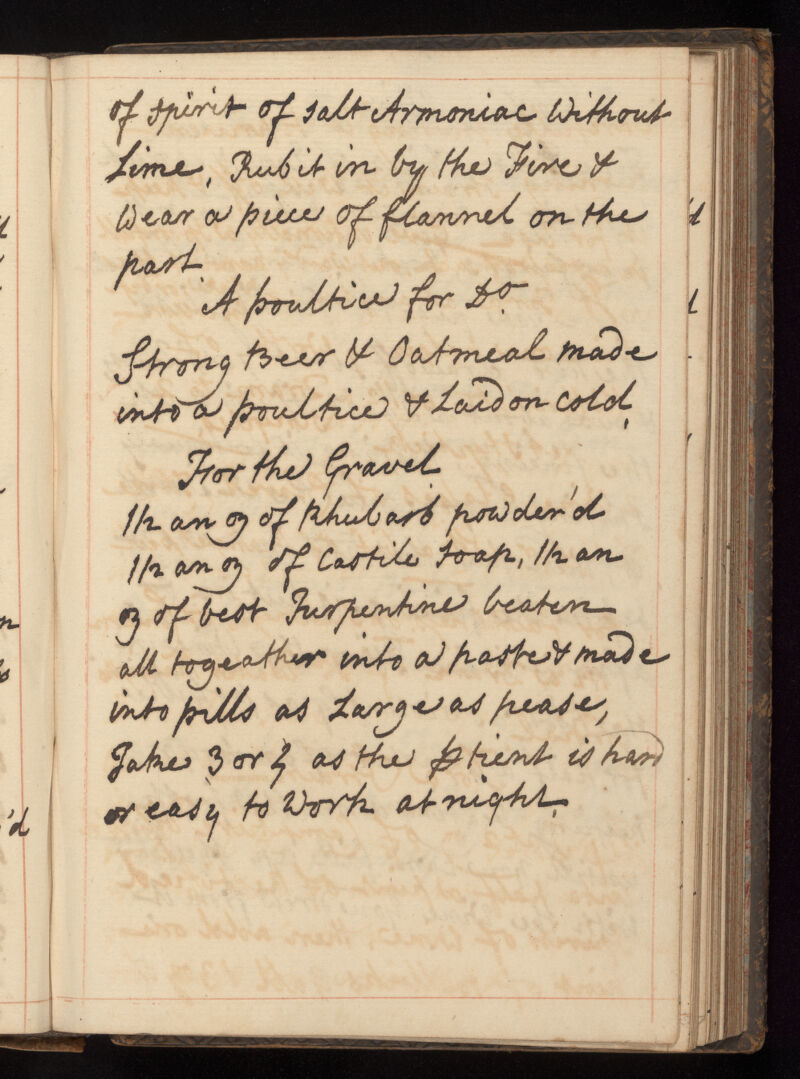 of spirit of salt Armoniac Without
Lime, Rub it in by the Fire &
Wear a piece of flannel on the
part.
A poultice for Do
Strong Beer & Oatmeal made
into a poultice & Laid on cold,
For the Gravel
1/2 an oz of Rhubarb powder'd
1/2 an oz of Castile Soap, 1/2 an
oz of best Turpentine beaten
all togeather into a paste & made
into pills as Large as pease,
Take 3 or 4 as the ptient is hard
or easy to Work at night.